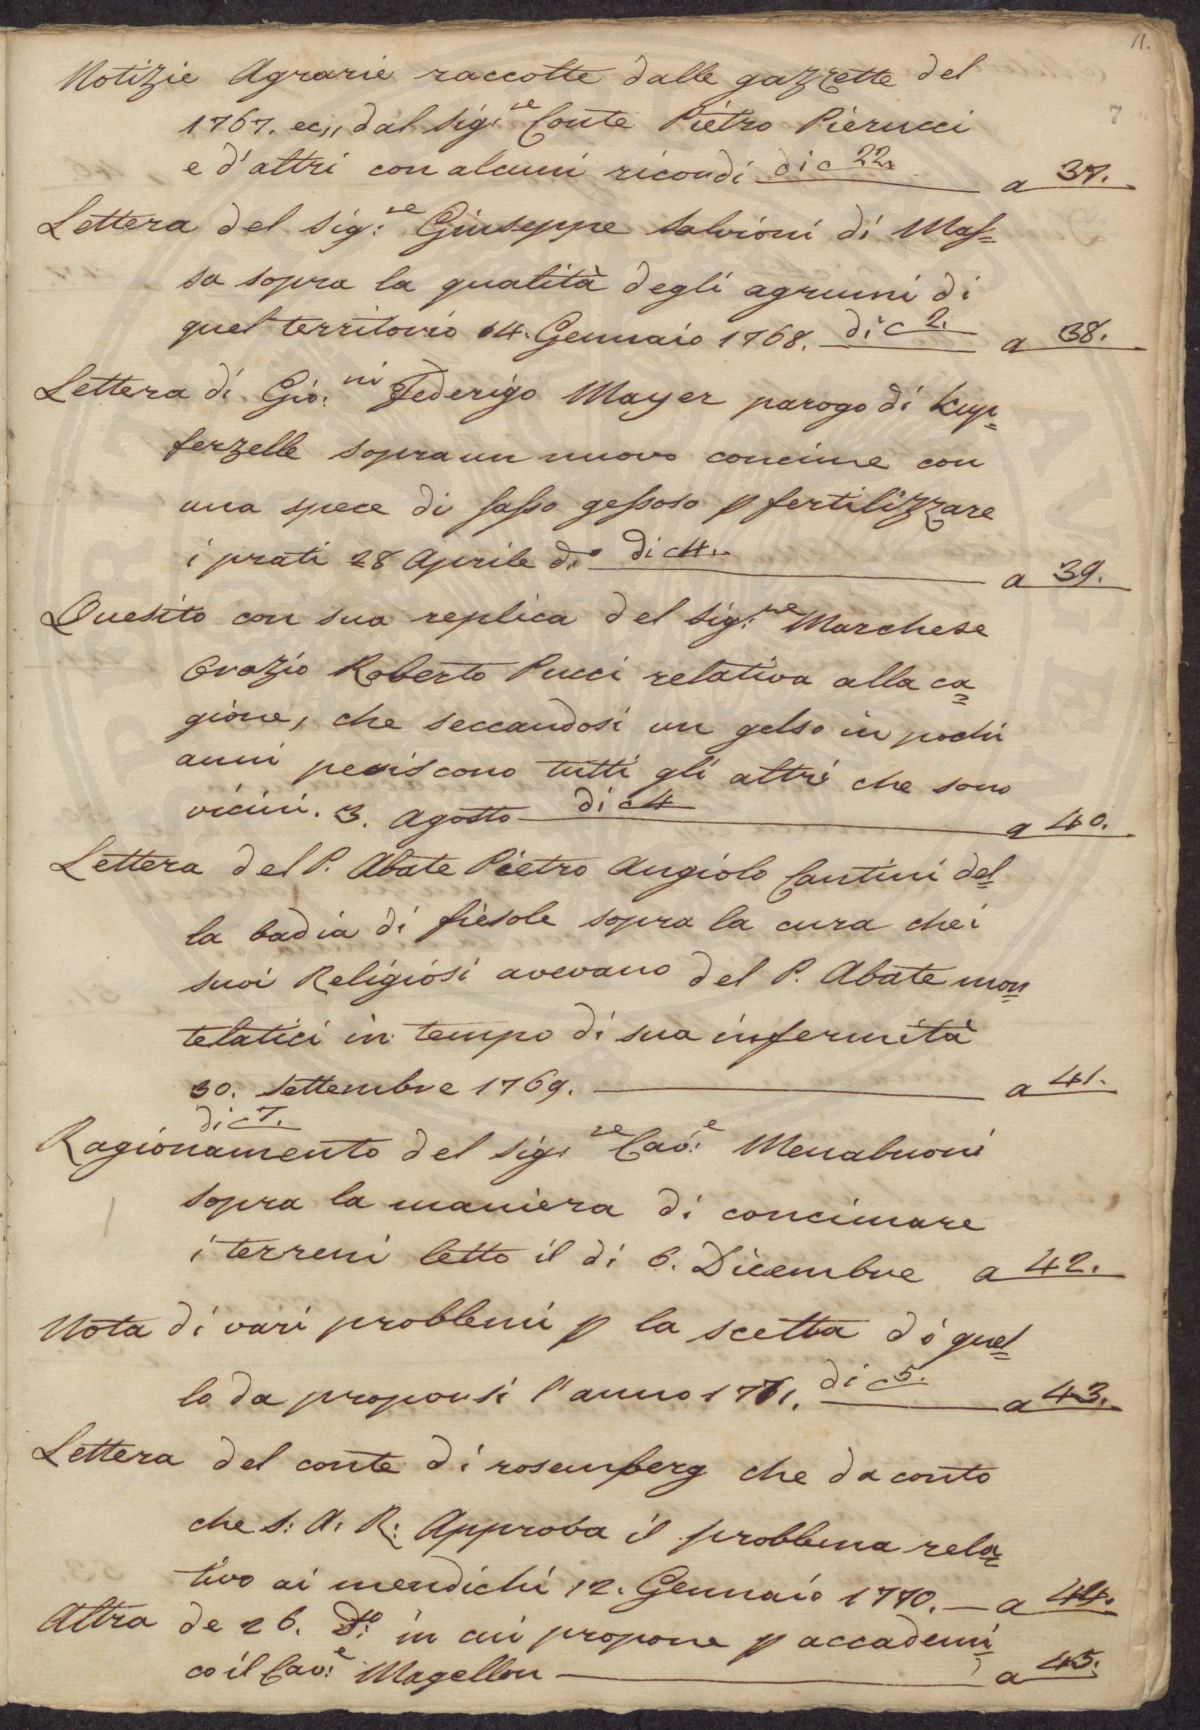 11.
7
Notizie Agrarie raccolte dalle gazzette del
1767. ec,, dal Sig:re Conte Pietro Pierucci
e d'altri con alcuni ricordi di c 22. a 37.
Lettera del Sig:re Giuseppe Salvioni di Mas=
sa sopra la qualità degli agrumi di
quel territorio 14. Gennaio 1768. di c 2. a 38.
Lettera di Gio:ni Federigo Mayer parogo di Kup=
ferzelle sopra un nuovo concime con
una spece di sasso gessoso p fertilizzare
i prati 28 Aprile d:o di c 4. a 39.
Quesito con sua replica del Sig:re Marchese
Orazio Roberto Pucci relativa alla ca=
gione, che seccandosi un gelso in pochi
anni periscono tutti gli altri che sono
vicini. 3. Agosto di c 4 a 40.
Lettera del P. Abate Pietro Angiolo Cantini del=
la badia di fiesole sopra la cura che i
suoi Religiosi avevano del P. Abate mon=
telatici in tempo di sua infermità
30. Settembre 1769. a 41.
di c 7.
Ragionamento del Sig:re Cav:e Menabuoni
sopra la maniera di concimare
i terreni letto il di 6. Dicembre a 42.
Nota di vari problemi p la scelta di quel=
lo da proporsi l'anno 1771. di c 5. a 43.
Lettera del conte di rosemberg che da conto
che S: A: R: Approva il problema rela=
tivo ai mendichi 12. Gennaio 1770. a 44.
Altra de 26. D:o in cui propone p accademi=
co il Cav:e Magellon a 45.